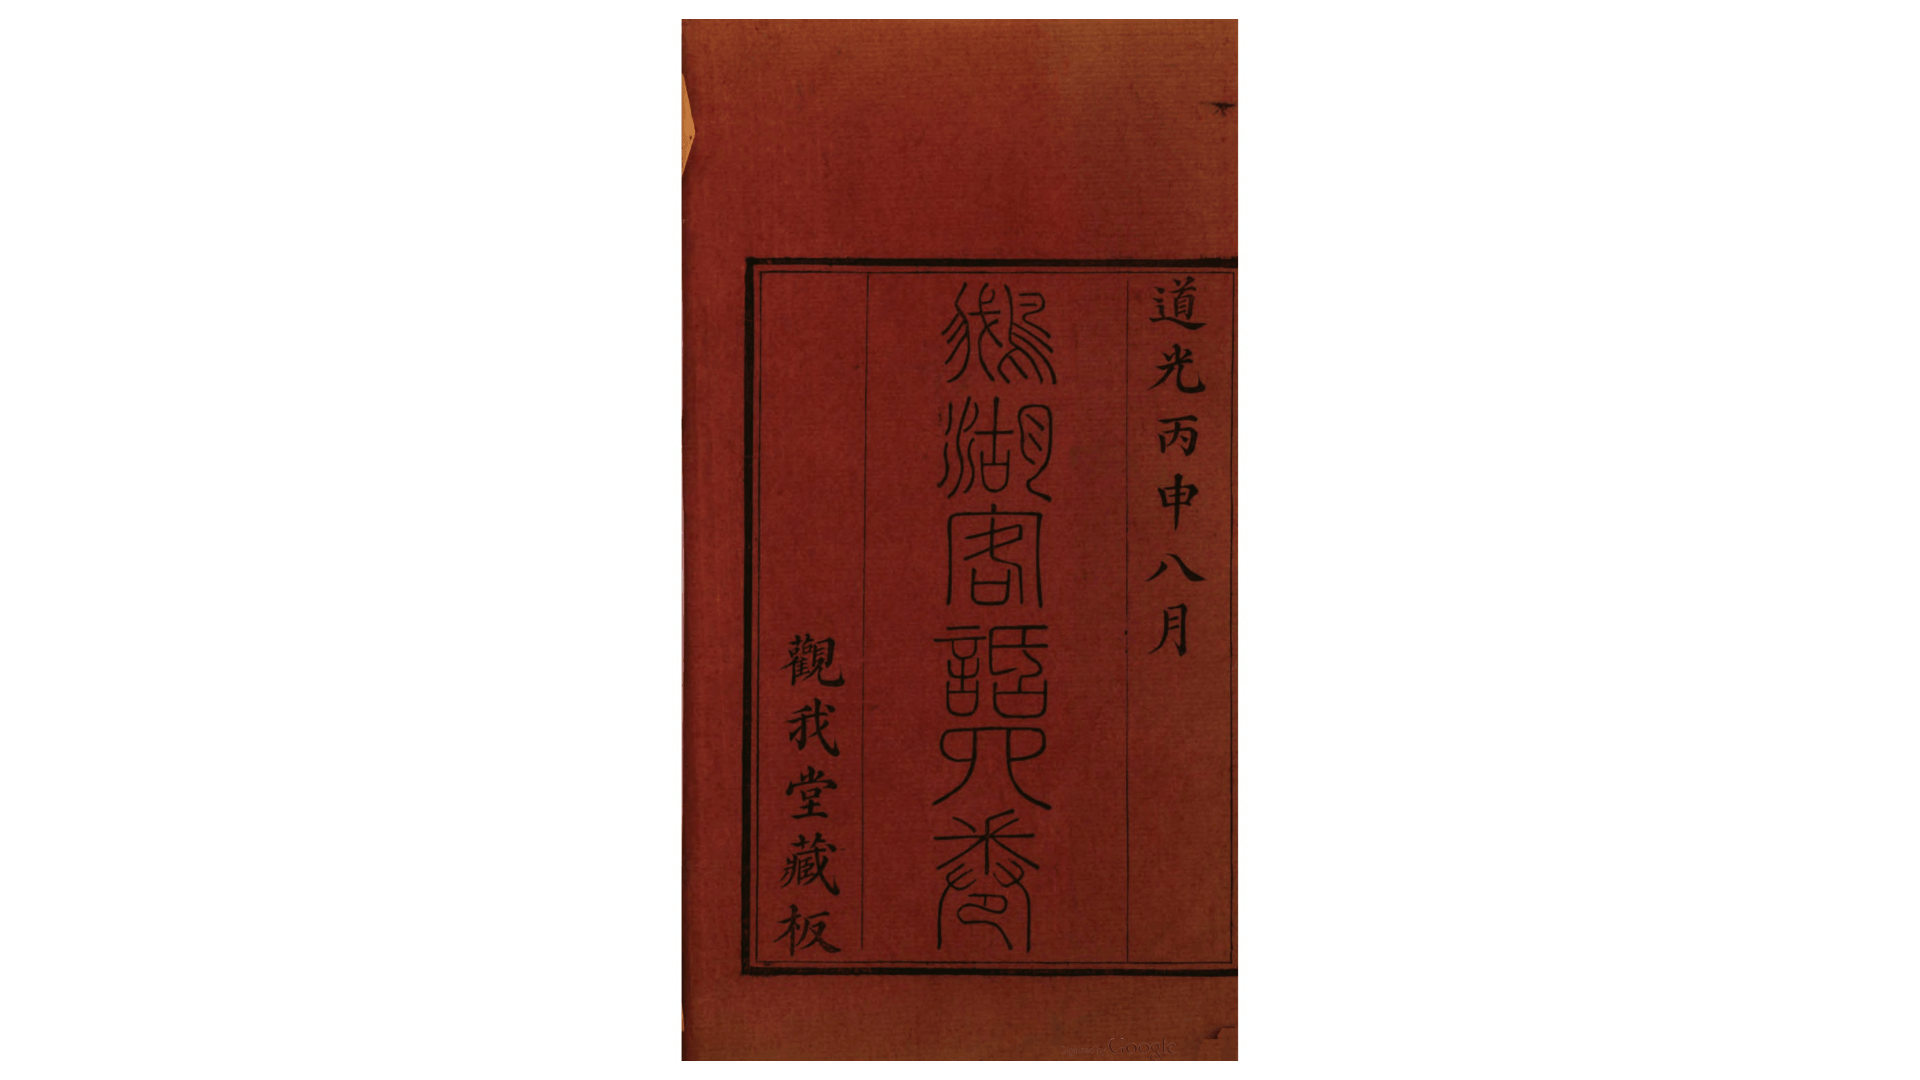 道光丙申八月
鵝湖客話四卷
觀我堂藏板
Google